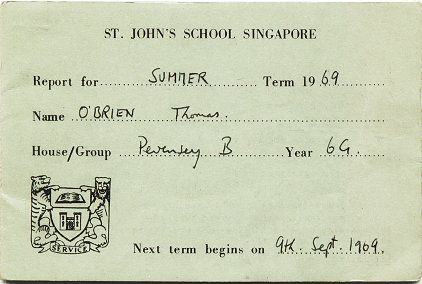 ST. JOHN'S SCHOOL SINGAPORE
Report for SUMMER Term 1969
Name O'BRIEN Thomas.
House/Group Pevensey B Year 6G.
SERVICE
Next term begins on 9th. Sept. 1969.